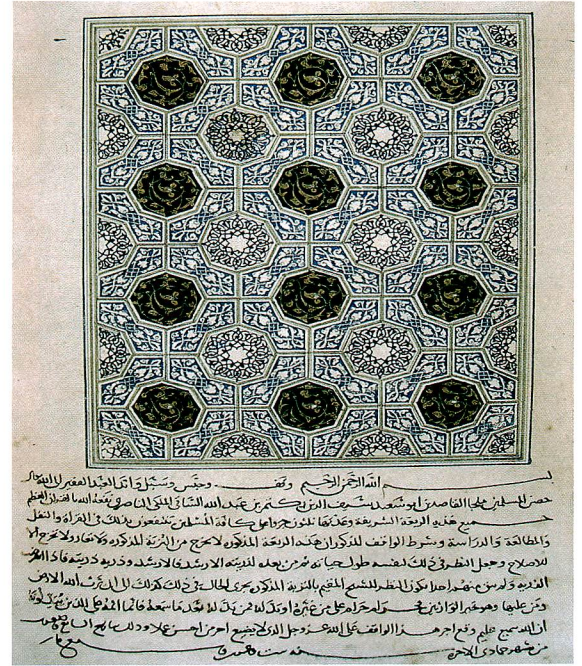 بسم الله الرحمن الرحيم وقف وحبس وسبل وأبد العبد الفقير الى الله تعالى
حصن المسلمين ملجا القاصدين ابو سعيد سيف الدين بكتمر بن عبد الله الساقي الملكي الناصري نفعه الله بالقرآن العظيم
جميع هذه الربعة الشريفة وعدتها ثلثون جزوا على كافة المسلمين ينتفعون بذلك في القراة والنقل
والمطالعة والدراسة وشرط الواقف المذكور ان هذه الربعة المذكورة لا تخرج من التربة المذكورة ولا تعار ولا تخرج الا
للاصلاح وجعل النظر في ذلك لنفسه طول حياته ثم من بعده لذريته الارشد فالارشد وذرية ذريته فاذا انقرض
الذرية ولم يبق منهم احدا يكون النظر للشيخ المقيم بالتربة المذكورة يجري الحال في ذلك كذلك الى ان يرث الله الارض
ومن عليها وهو خير الوارثين فمن بدله بعد ما سمعه فانما اثمه على الذين يبدلونه
ان الله سميع عليم وقع اجر هذا الواقف على الله عز وجل الذي لا يضيع اجر من احسن عملا وذلك بتاريخ
من شهر جمادى الاخرة سنة ست وعشرين وسبع مائة